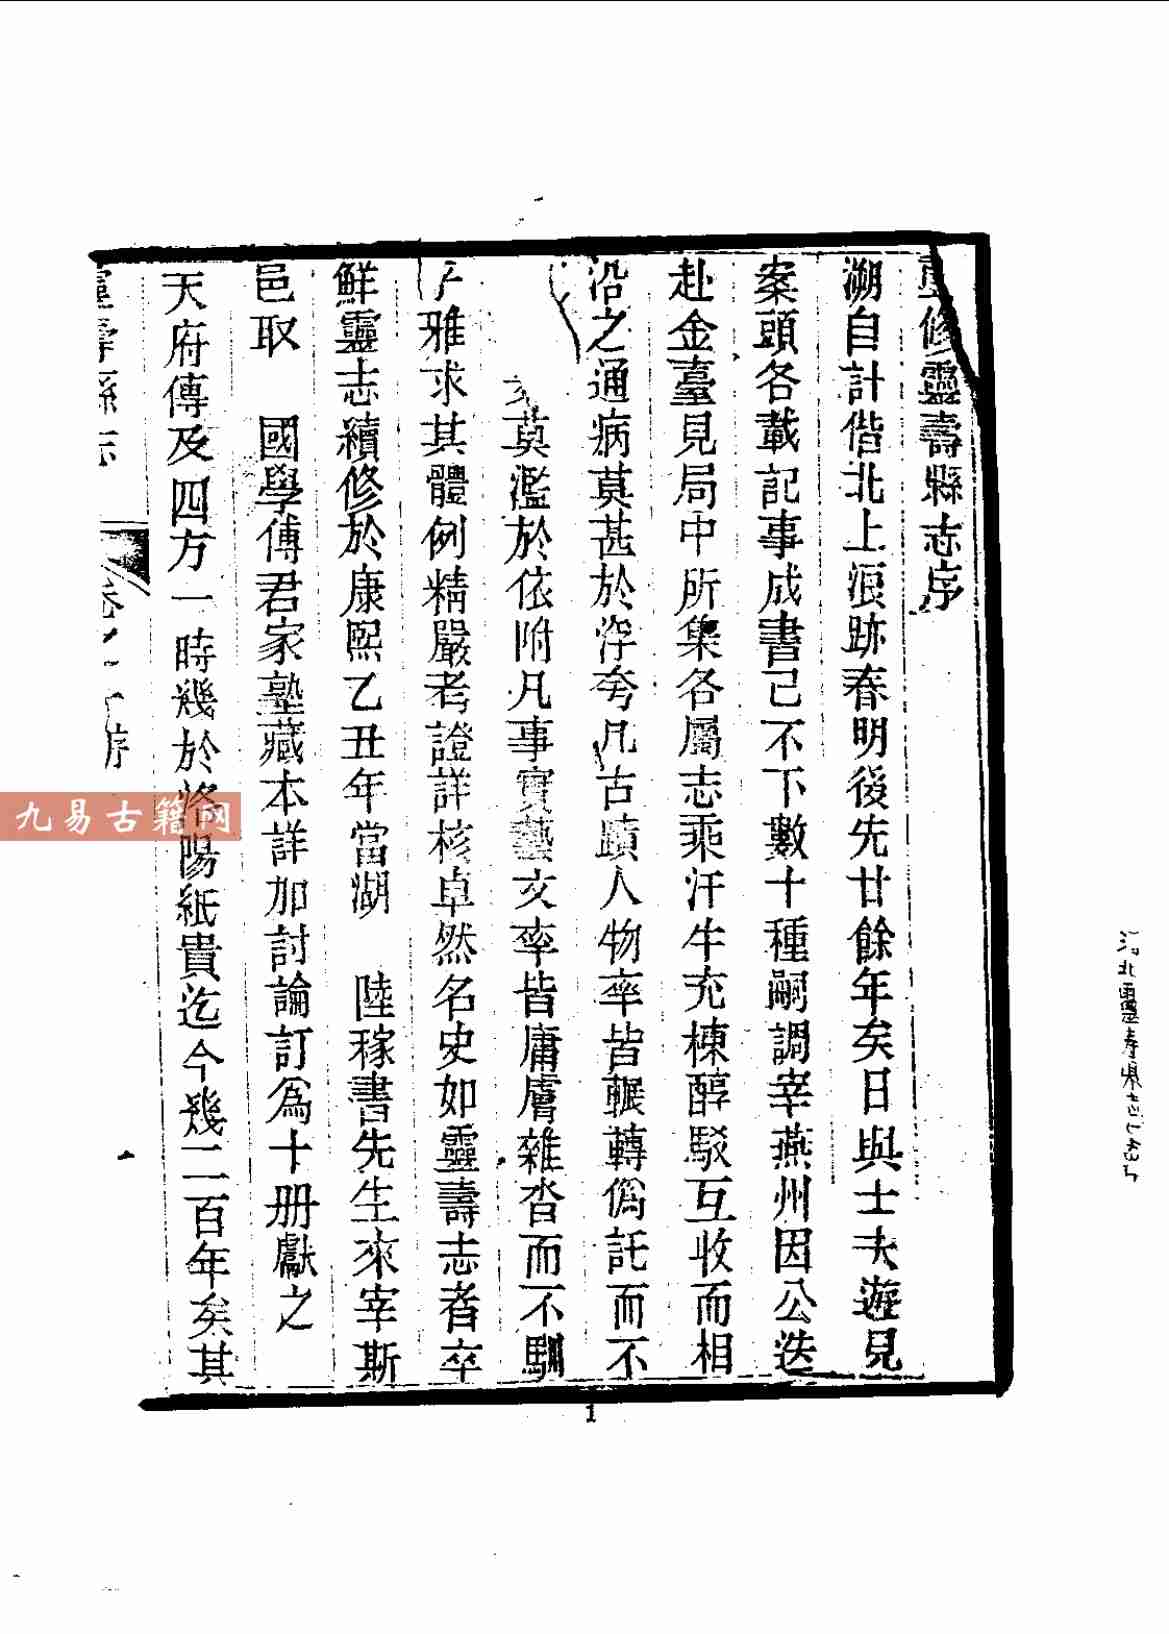 修靈壽縣志序
溯自計偕北上浪跡春明後先廿餘年矣日與士夫遊見
案頭各載記事成書已不下數十種嗣調宰燕州因公迭
赴金臺見局中所集各屬志乘汗牛充棟醇駁互收而相
沿之通病莫甚於浮夸凡古蹟人物率皆輾轉僞託而不
莫濫於依附凡事實藝文率皆庸膚雜沓而不馴
雅求其體例精嚴考證詳核卓然名史如靈壽志者卒
鮮靈志續修於康熙乙丑年當湖 陸稼書先生來宰斯
邑取 國學傅君家塾藏本詳加討論訂爲十册獻之
天府傳及四方一時幾於洛陽紙貴迄今幾二百年矣其
靈壽縣志 卷之 序
1
九易古籍网